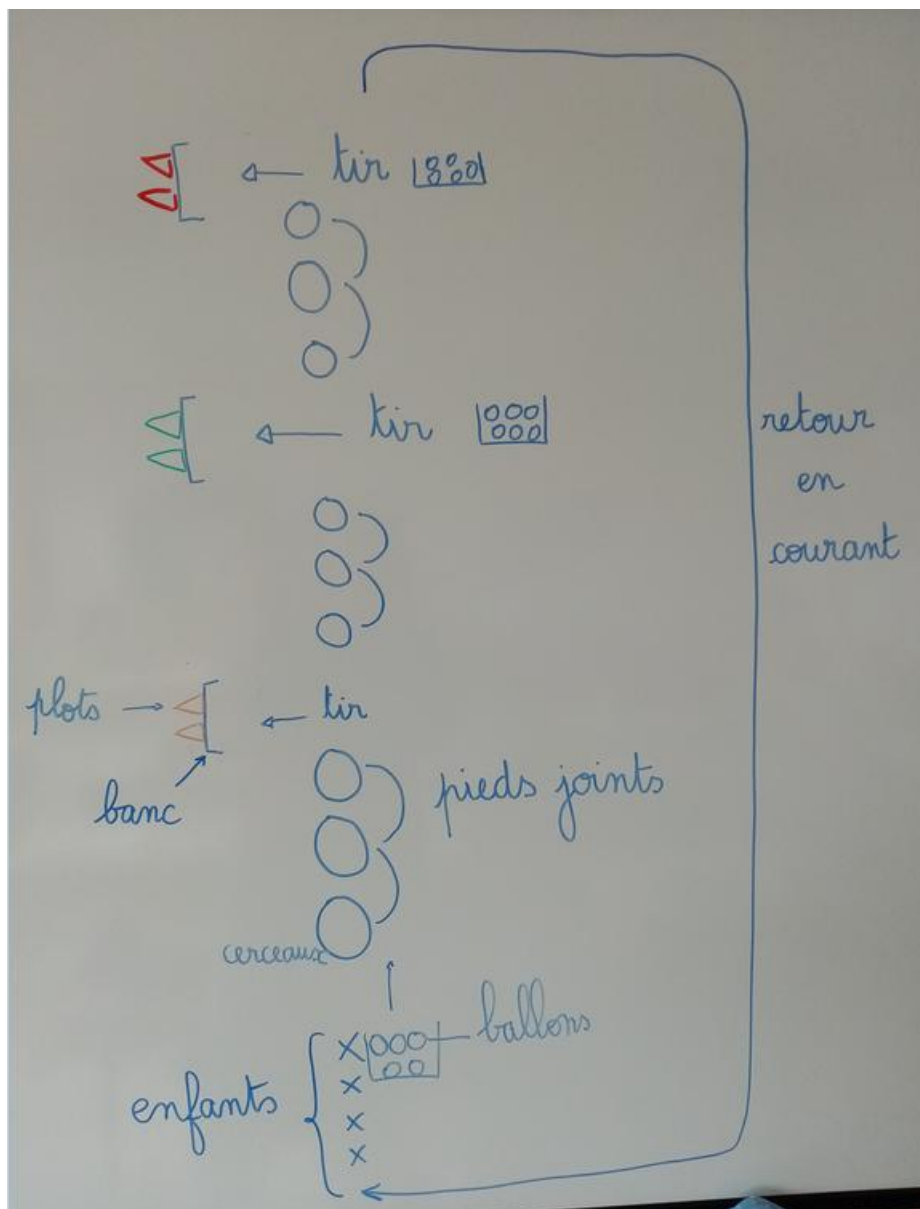 tir
tir
retour
en
courant
plots
tir
banc
pieds joints
cerceaux
ballons
enfants